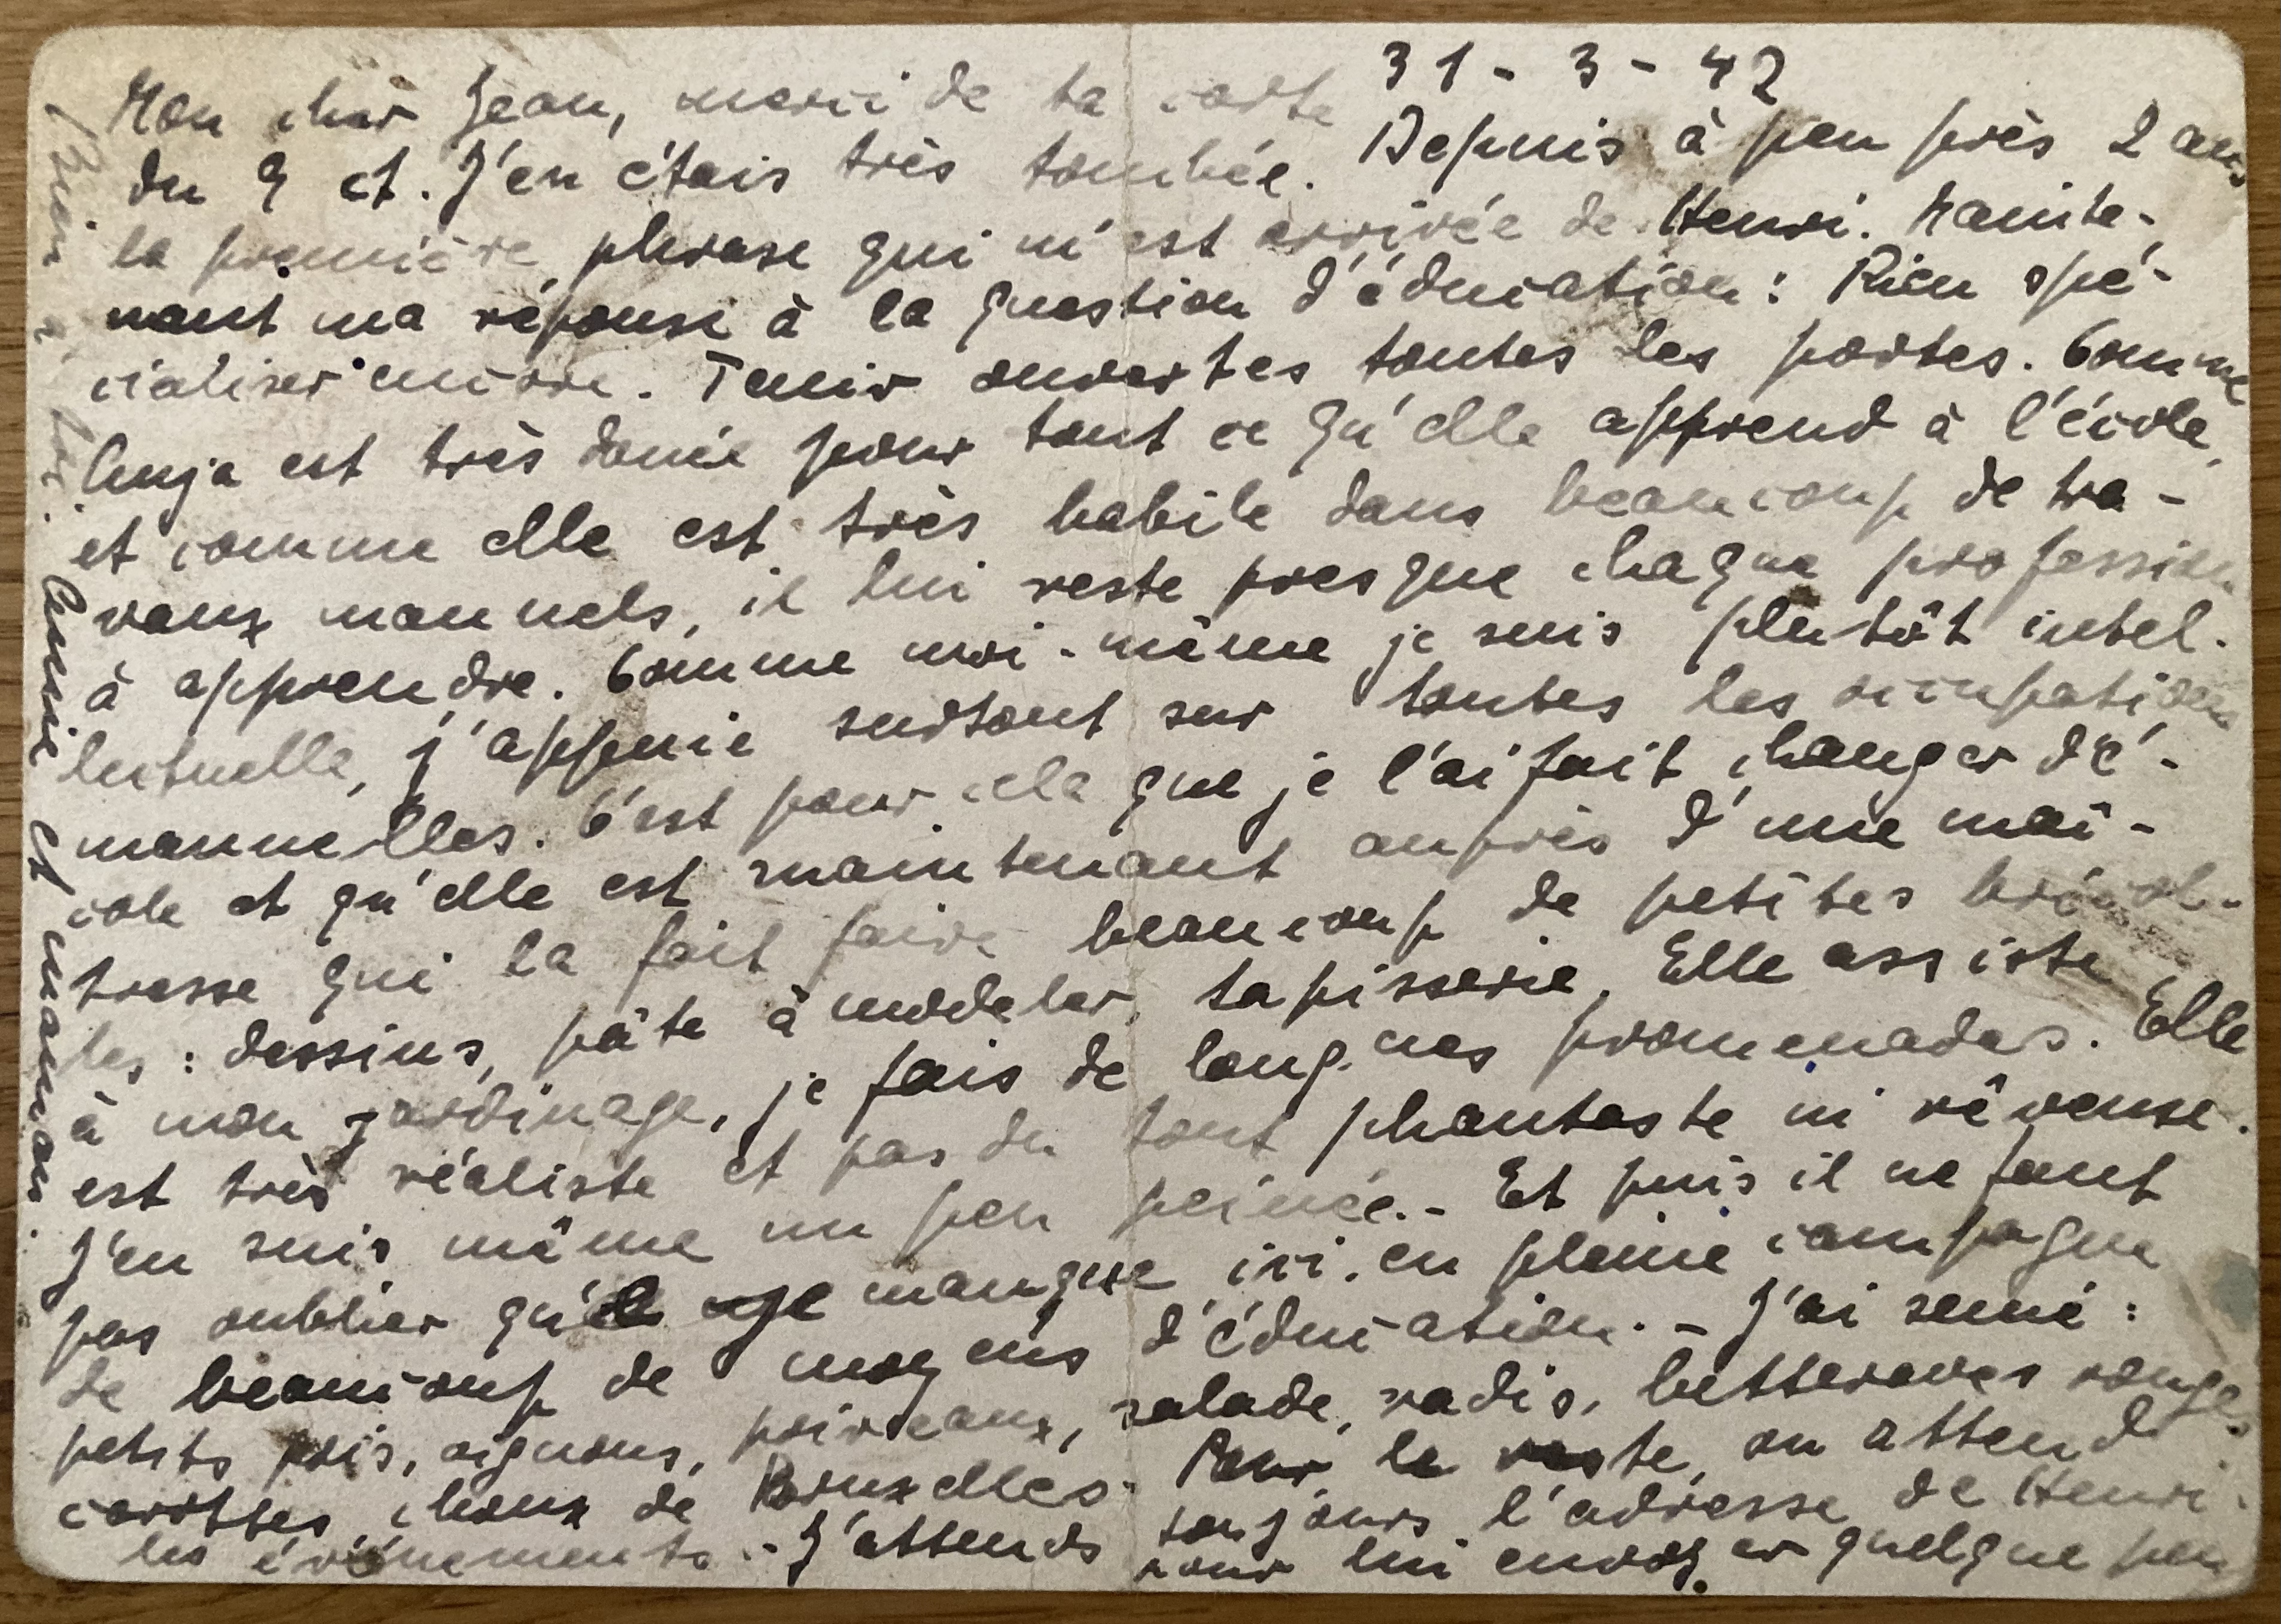 31 - 3 - 42
Mon cher Jean, merci de ta carte
du 9 ct. J'en étais très touchée. Depuis à peu près 2 ans
la première phrase qui m'est arrivée de Henri. Mainte-
nant ma réponse à la question d'éducation : Rien spé-
cialiser encore. Tenir ouvertes toutes les portes. Comme
Anja est très douée pour tout ce qu'elle apprend à l'école,
et comme elle est très habile dans beaucoup de tra-
vaux manuels, il lui reste presque chaque profession
à apprendre. Comme moi-même je suis plutôt intel-
lectuelle, j'appuie surtout sur toutes les occupations
manuelles. C'est pour cela que je l'ai fait changer d'é-
cole et qu'elle est maintenant auprès d'une maî-
tresse qui la fait faire beaucoup de petites bricol-
les : dessins, pâte à modeler, tapisserie. Elle assiste
à mon jardinage, je fais de longues promenades. Elle
est très réaliste et pas du tout phantaste ni rêveuse.
J'en suis même un peu peinée. - Et puis il ne faut
pas oublier qu'elle manque ici en pleine campagne
de beaucoup de moyens d'éducation. - J'ai semé :
petits pois, oignons, poireaux, salade, radis, betteraves rouges,
carottes, choux de Bruxelles. Pour le reste, on attend
les événements. - J'attends toujours l'adresse de Henri
pour lui envoyer quelque peu
Bien à toi. Annie et maman.